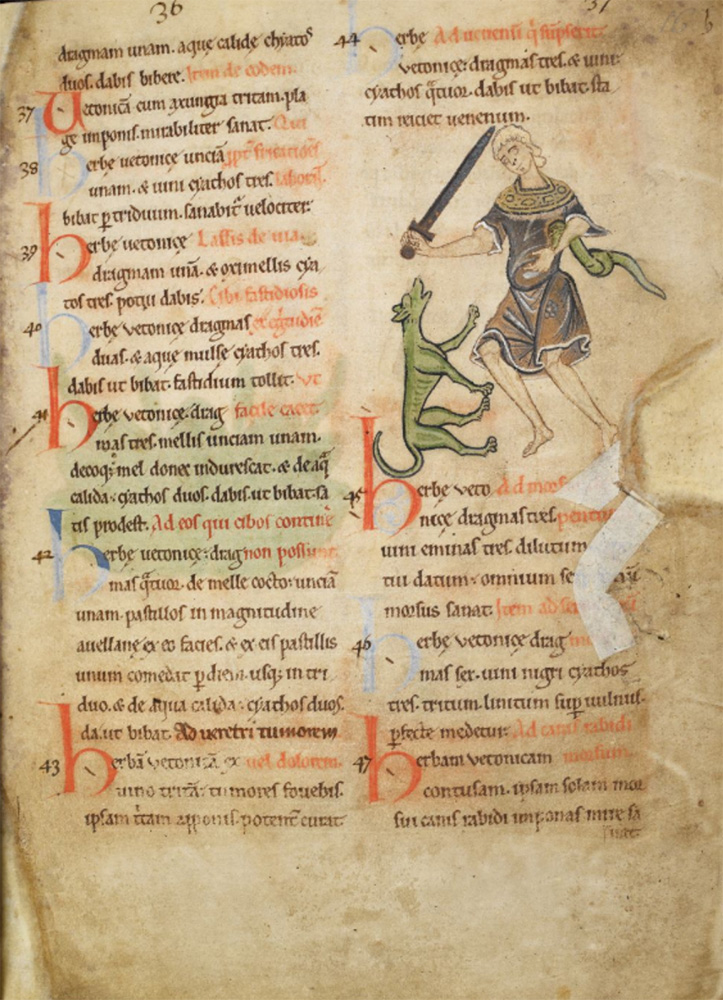 36
dragmam unam. aque calide chyatoſ
duos. dabis bibere. Item de eodem.
37 Vetonica cum axungia tritam. pla
ge imponis. mirabiliter sanat. Qui
38 herbe vetonice unciā
unam. & uini cyathos tres. laborant.
bibat p triduum. sanabit velociter.
39 herbe vetonice Lassis de uia
dragmam unā. & oximellis cya
tos tres. potui dabis. Cibi fastidiosis
40 herbe vetonice dragmas
duas. & aque mulse cyathos tres.
dabis ut bibat. fastidium tollit. Vt
41 herbe vetonice. drag facile cacet.
mas tres. mellis unciam unam.
decoq; mel donec indurescat. & de aq̄
calida. cyathos duos. dabis. ut bibat. sa
tis prodest. Ad eos qui cibos contine
42 herbe vetonice. drag non possunt
mas q̄tuor. de melle cocto. unciā
unam. pastillos in magnitudine
auellane ex eo facies. & ex eis pastillis
unum comedat p diem. usq; in tri
duo. & de aqua calida. cyathos duos.
da. ut bibat. Ad veretri tumorem
43 herbā vetonicā ex vel dolorem.
uino tritā. tumores fouebis.
ipsam apponis. potent curat
37
44 herbe Ad uenenū
vetonice. dragmas tres. & uini
cyathos q̄tuor. dabis ut bibat. sta
tim reiciet uenenum.
45 herbe veto Ad mors
nice dragmas tres.
uini eminas tres. dilutum
tiu datum. omnium se
morsus sanat. Item ad
46 herbe vetonice drag
mas sex. uini nigri cyathos
tres. tritum. linitum sup uulnus.
pfecte medetur. Ad canis rabidi
47 herbam vetonicam morsum.
contusam. ipsam solam mor
sui canis rabidi imponas mire sa
nat.